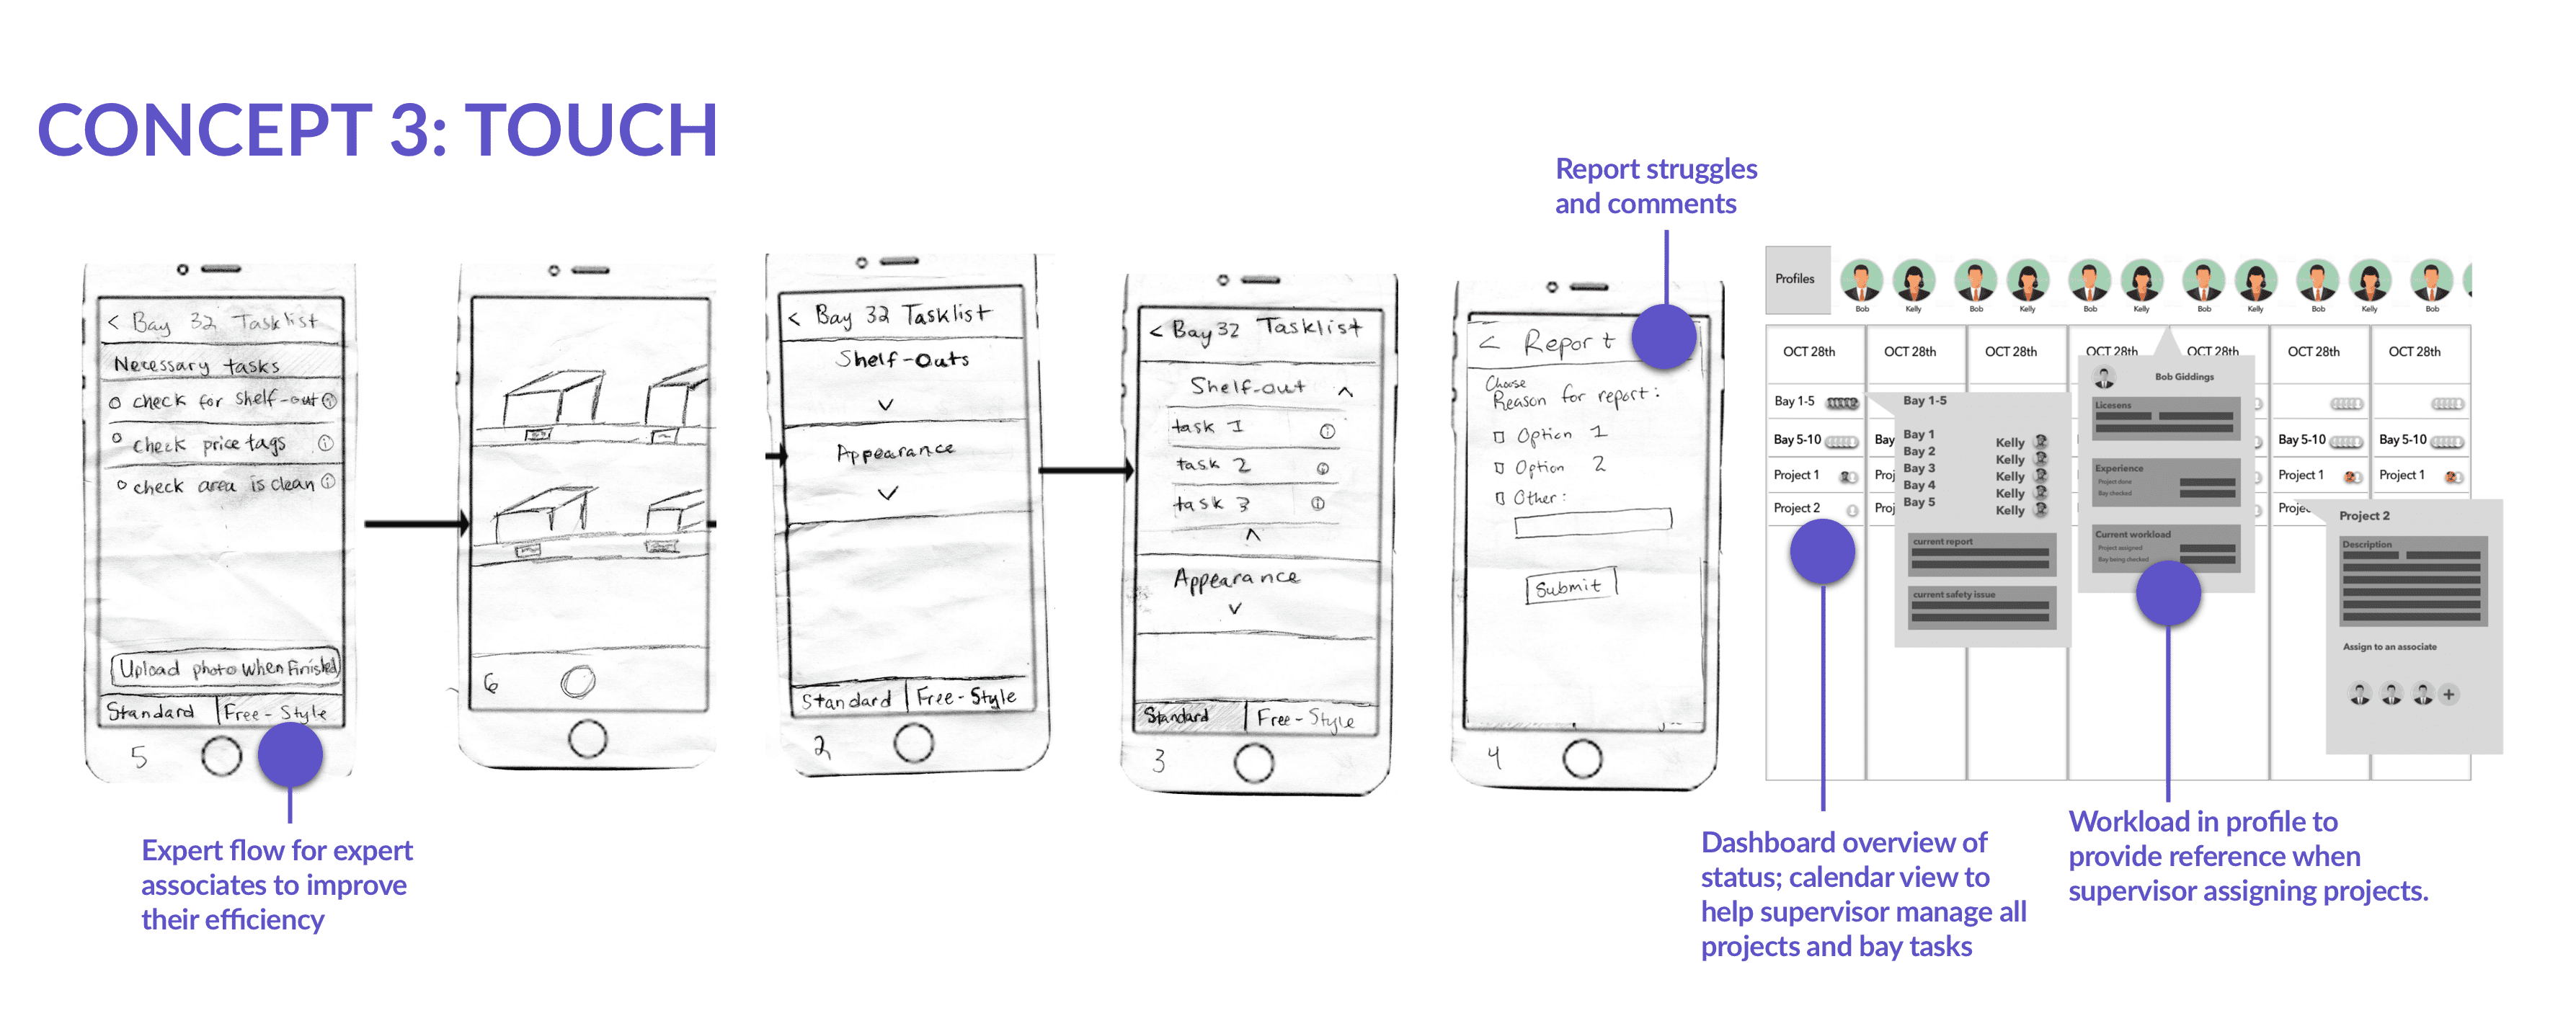 CONCEPT 3: TOUCH
Report struggles
and comments
< Bay 32 Tasklist
Necessary tasks
check for shelf-out
check price tags
check area is clean
Upload photo when finished
Standard
Free-Style
5
6
< Bay 32 Tasklist
Shelf-Outs
Appearance
Standard
Free-Style
2
< Bay 32 Tasklist
Shelf-out
task 1
task 2
task 3
Appearance
Standard
Free-Style
3
< Report
Choose
Reason for report:
Option 1
Option 2
Other:
Submit
4
Profiles
Bob
Kelly
Bob
Kelly
Bob
Kelly
Bob
Kelly
Bob
Kelly
Bob
OCT 28th
OCT 28th
OCT 28th
OCT 28th
OCT 28th
OCT 28th
OCT 28th
Bay 1-5
Bay 5-10
Project 1
Project 2
Bay
Proj
Proj
Bay 1-5
Bay 1
Kelly
Bay 2
Kelly
Bay 3
Kelly
Bay 4
Kelly
Bay 5
Kelly
current report
current safety issue
Bob Giddings
Licesens
Experience
Project done
Bay checked
Current workload
Project assigned
Bay being checked
Bay 5-10
Bay 5-10
Project 1
Project 1
Projec
Project 2
Description
Assign to an associate
+
Expert flow for expert
associates to improve
their efficiency
Dashboard overview of
status; calendar view to
help supervisor manage all
projects and bay tasks
Workload in profile to
provide reference when
supervisor assigning projects.